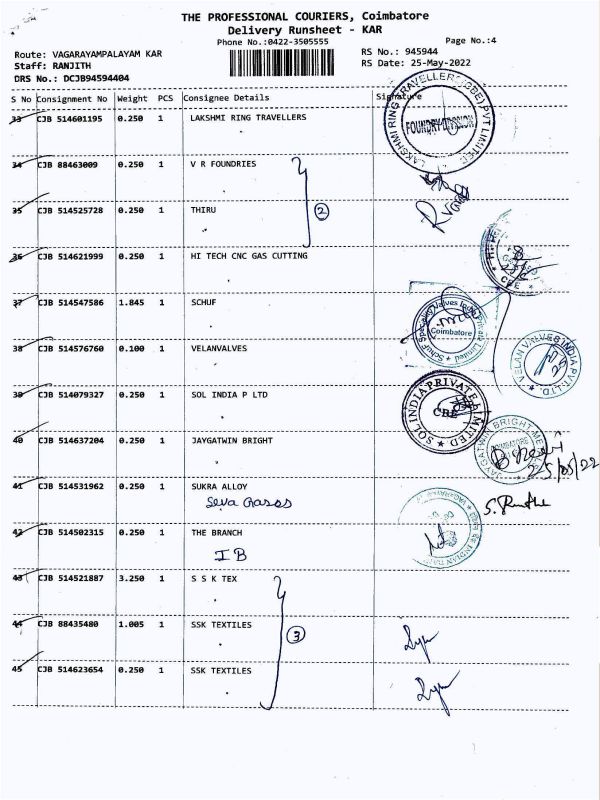 THE PROFESSIONAL COURIERS, Coimbatore
Delivery Runsheet - KAR
Phone No.:0422-3505555
Page No.:4
Route: VAGARAYAMPALAYAM KAR
RS No.: 945944
Staff: RANJITH
RS Date: 25-May-2022
DRS No.: DCJB94594404
S No Consignment No Weight PCS Consignee Details Signature
33 CJB 514601195 0.250 1 LAKSHMI RING TRAVELLERS
LAKSHMI RING TRAVELLERS (CBE) PVT LIMITED
FOUNDRY DIVISION
34 CJB 88463009 0.250 1 V R FOUNDRIES
2
35 CJB 514525728 0.250 1 THIRU
36 CJB 514621999 0.250 1 HI TECH CNC GAS CUTTING
CBE
37 CJB 514547586 1.845 1 SCHUF
Schuf Speciality Valves India Private Limited
Coimbatore
38 CJB 514576760 0.100 1 VELANVALVES
VELAN VALVES INDIA PVT. LTD.
39 CJB 514079327 0.250 1 SOL INDIA P LTD
SOL INDIA PRIVATE LIMITED
CBE
40 CJB 514637204 0.250 1 JAYGATWIN BRIGHT
JAYGATWIN BRIGHT
COIMBATORE
25/05/22
41 CJB 514531962 0.250 1 SUKRA ALLOY
42 CJB 514502315 0.250 1 THE BRANCH
IB
43 CJB 514521887 3.250 1 S S K TEX
44 CJB 88435480 1.005 1 SSK TEXTILES
3
45 CJB 514623654 0.250 1 SSK TEXTILES